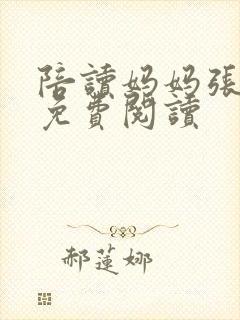 陪讀妈妈張
免費閱讀
郝蓮娜